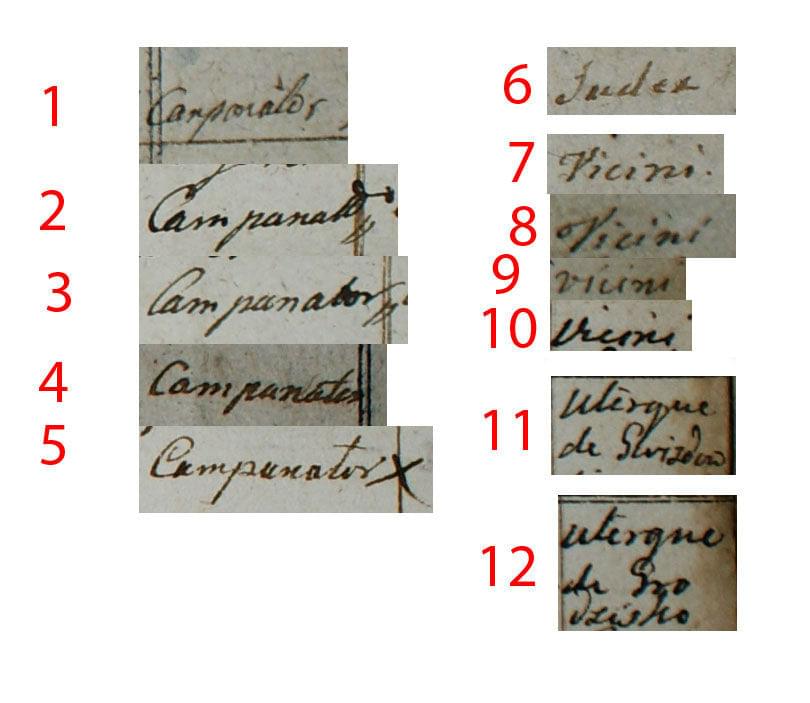 1 Camponator
2 Campanator
3 Campanator
4 Campanator
5 Campanator X
6 Judex
7 Vicini.
8 Vicini
9 vicini
10 Vicini
11 Uterque
de
12 uterque
de Gro
dzisko